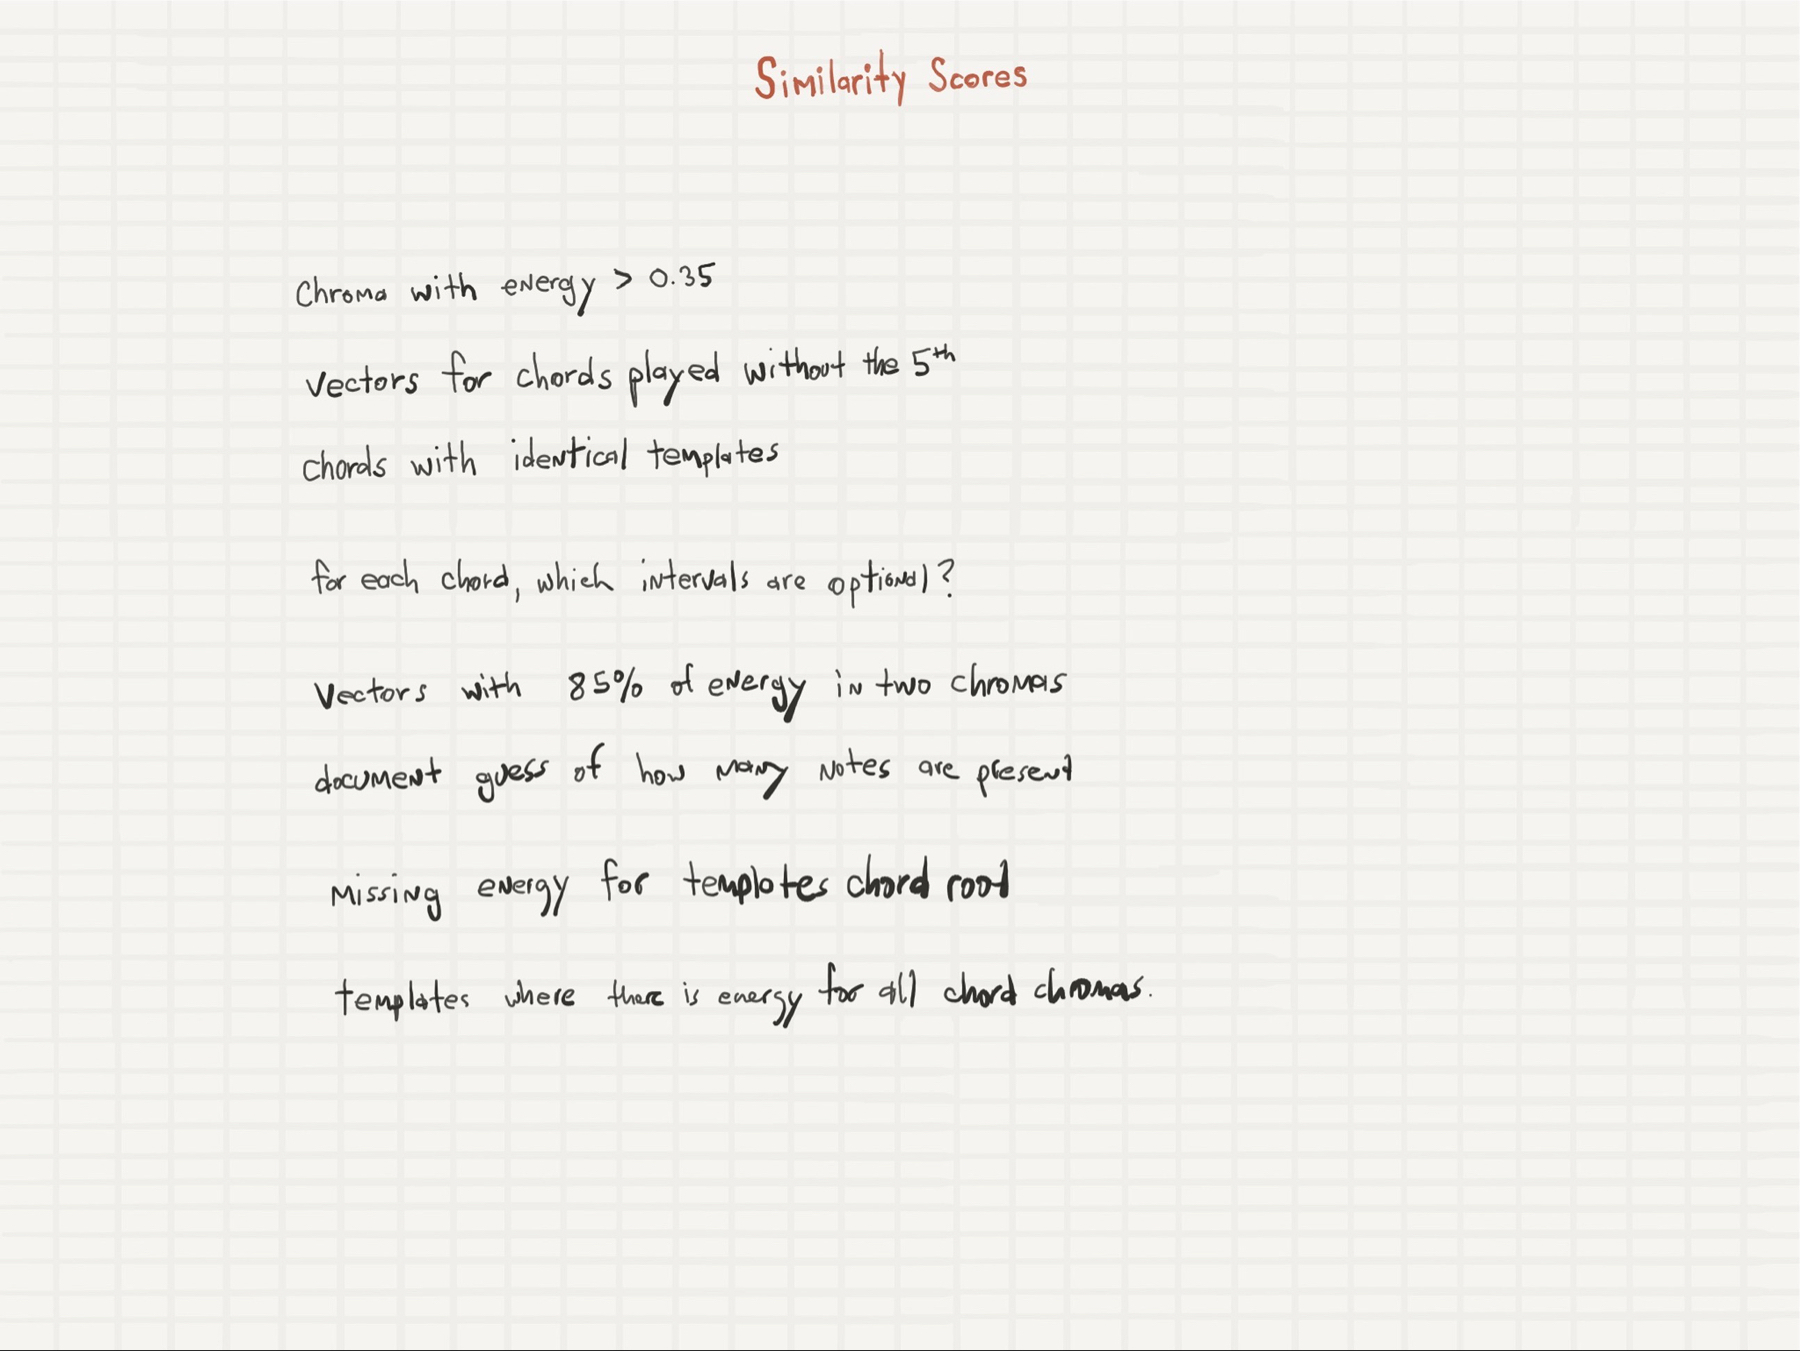 Similarity Scores
Chroma with energy > 0.35
Vectors for chords played without the 5th
chords with identical templates
for each chord, which intervals are optional?
Vectors with 85% of energy in two chromas
document guess of how many notes are present
Missing energy for templates chord root
templates where there is energy for all chord chromas.